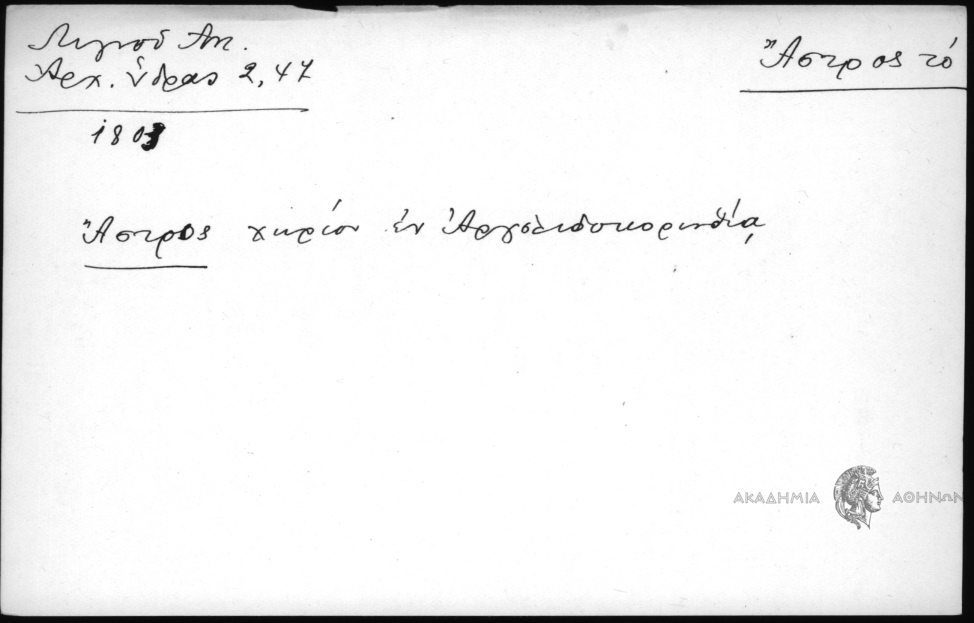 Λιγνοῦ Ἀντ.
Ἀρχ. Ὕδρας 2, 47
Ἄστρος τό
1803
Ἄστρος χωρίον ἐν Ἀργολιδοκορινθίᾳ
ΑΚΑΔΗΜΙΑ ΑΘΗΝΩΝ